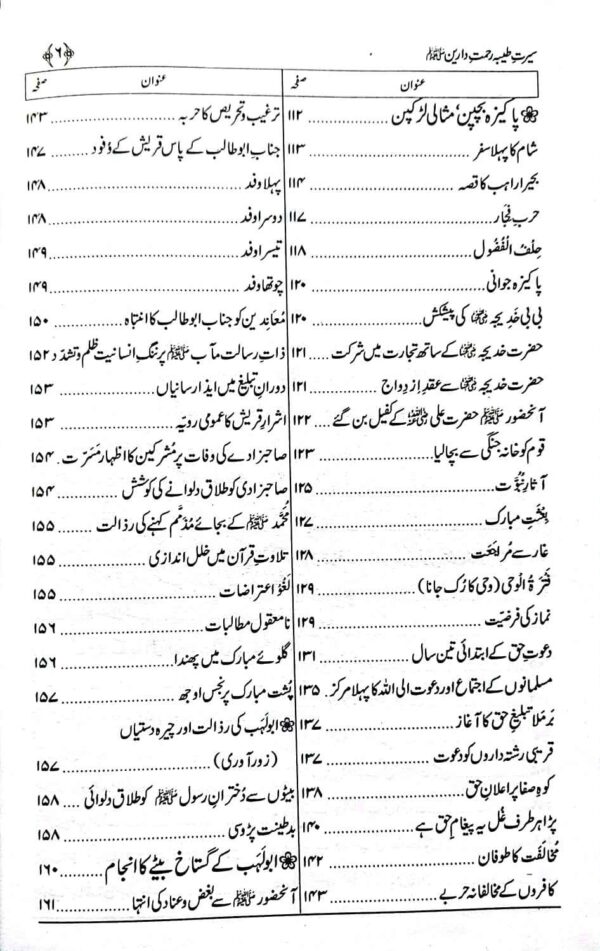 سیرتِ طیبہ رحمتِ دارین ﷺ ﴿۶﴾
عنوان صفحہ
پاکیزہ بچپن، مثالی لڑکپن ۱۱۲
شام کا پہلا سفر ۱۱۳
بحیرا راہب کا قصہ ۱۱۴
حربِ فجار ۱۱۷
حِلْفُ الْفُضُول ۱۱۸
پاکیزہ جوانی ۱۲۰
بی بی خدیجہ رضی اللہ عنہا کی پیشکش ۱۲۰
حضرت خدیجہ رضی اللہ عنہا کے ساتھ تجارت میں شرکت ۱۲۱
حضرت خدیجہ رضی اللہ عنہا سے عقدِ ازدواج ۱۲۱
آنحضور ﷺ حضرت علی رضی اللہ عنہ کے کفیل بن گئے ۱۲۲
قوم کو خانہ جنگی سے بچالیا ۱۲۳
آثارِ نبوّت ۱۲۵
بعثتِ مبارک ۱۲۷
غار سے مُراجعت ۱۲۸
فَتْرَۃُ الْوحی (وحی کا رُک جانا) ۱۲۹
نماز کی فرضیّت ۱۲۹
دعوتِ حق کے ابتدائی تین سال ۱۳۱
مسلمانوں کے اجتماع اور دعوت الی اللہ کا پہلا مرکز ۱۳۵
برملا تبلیغِ حق کا آغاز ۱۳۷
قریبی رشتہ داروں کو دعوت ۱۳۷
کوہِ صفا پر اعلانِ حق ۱۳۸
پڑا ہر طرف غُل یہ پیغامِ حق ہے ۱۴۰
مخالفت کا طوفان ۱۴۲
کافروں کے مخالفانہ حربے ۱۴۳
عنوان صفحہ
ترغیب و تحریص کا حربہ ۱۴۳
جنابِ ابوطالب کے پاس قریش کے وُفود ۱۴۷
پہلا وفد ۱۴۸
دوسرا وفد ۱۴۸
تیسرا وفد ۱۴۹
چوتھا وفد ۱۴۹
مُعاندین کو جناب ابوطالب کا انتباہ ۱۵۰
ذاتِ رسالت مآب ﷺ پر ننگِ انسانیت ظلم و تشدّد ۱۵۲
دورانِ تبلیغ میں ایذا رسانیاں ۱۵۳
اشرارِ قریش کا عمومی رویّہ ۱۵۳
صاحبزادے کی وفات پر مُشرکین کا اظہارِ مَسَرّت ۱۵۴
صاحبزادی کو طلاق دلوانے کی کوشش ۱۵۴
مُحَمَّد ﷺ کے بجائے مُذَمَّم کہنے کی رذالت ۱۵۵
تلاوتِ قرآن میں خلل اندازی ۱۵۵
لَغْو اعتراضات ۱۵۵
نامعقول مطالبات ۱۵۶
گلوئے مبارک میں پھندا ۱۵۶
پُشت مبارک پر نجس اوجھ ۱۵۷
ابولَہَب کی رذالت اور چیرہ دستیاں
(زور آوری) ۱۵۷
بیٹوں سے دُخترانِ رسول ﷺ کو طلاق دلوائی ۱۵۸
بدطینت پڑوسی ۱۵۸
ابولَہَب کے گستاخ بیٹے کا انجام ۱۶۰
آنحضور ﷺ سے بغض و عناد کی انتہا ۱۶۱